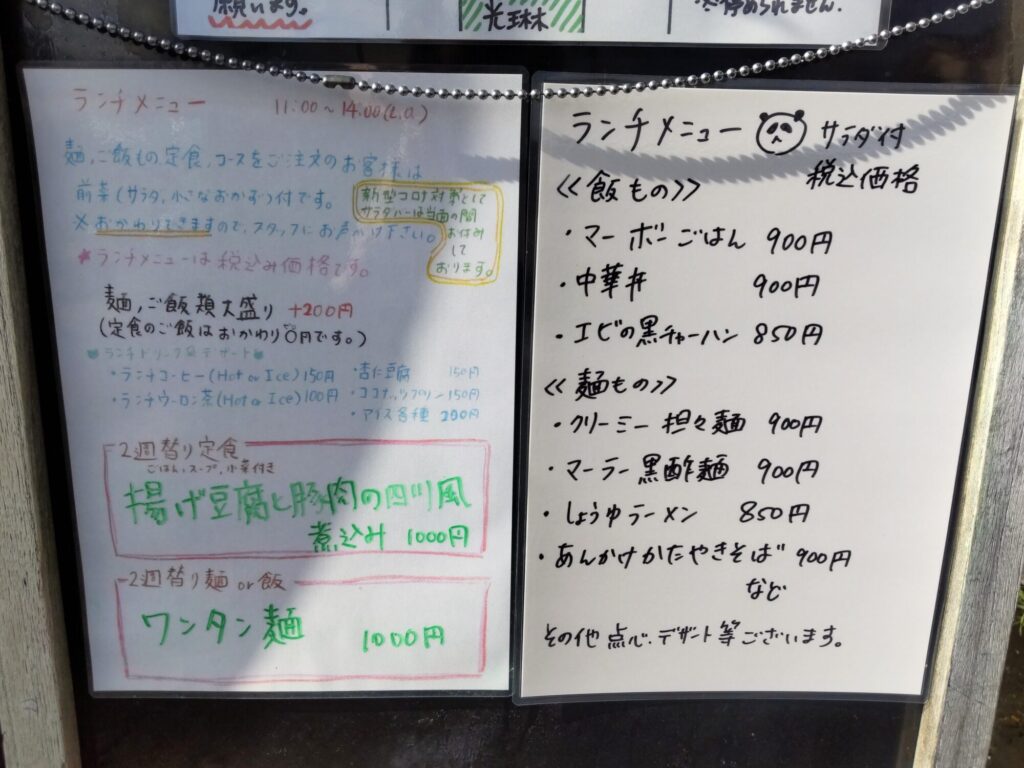 願います。
光琳
※停められません.
ランチメニュー 11:00~14:00(L.O.)
麺,ご飯もの定食,コースをご注文のお客様は
前菜(サラダ,小さなおかず)付です。
※おかわりできますので,スタッフにお声かけ下さい。
新型コロナ対策として
サラダバーは当面の間
お休み
して
おります。
★ランチメニューは税込み価格です。
麺,ご飯類大盛り +200円
(定食のご飯はおかわり0円です。)
ランチドリンク&デザート
・ランチコーヒー(Hot or Ice)150円
・ランチウーロン茶(Hot or Ice)100円
・杏仁豆腐 150円
・ココナッツプリン 150円
・アイス各種 200円
2週替り定食
ごはん,スープ,小菜付き
揚げ豆腐と豚肉の四川風
煮込み 1000円
2週替り麺 or 飯
ワンタン麺 1000円
ランチメニュー サラダ付
税込価格
<<飯もの>>
・マーボーごはん 900円
・中華丼 900円
・エビの黒チャーハン 850円
<<麺もの>>
・クリーミー担々麺 900円
・マーラー黒酢麺 900円
・しょうゆラーメン 850円
・あんかけかたやきそば 900円
など
その他 点心.デザート等ございます。